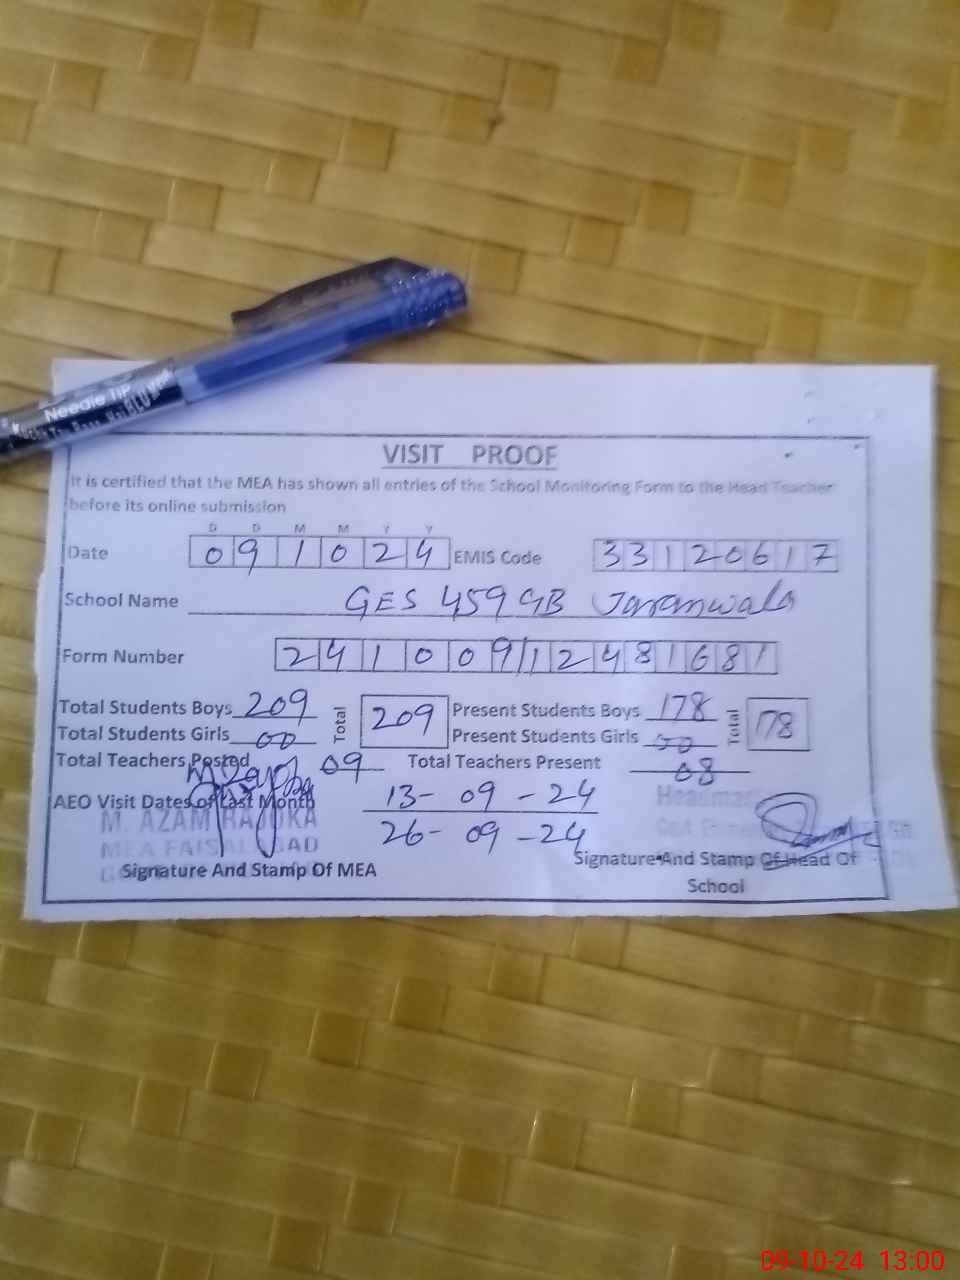 Needle Tip
VISIT PROOF
It is certified that the MEA has shown all entries of the School Monitoring Form to the Head Teacher
before its online submission
D D M M Y Y
Date 091024 EMIS Code 33120617
School Name GES 459 GB Jaranwala
Form Number 24100912481681
Total Students Boys 209 Total 209 Present Students Boys 178 Total 178
Total Students Girls 00 Present Students Girls 00
Total Teachers Posted 09 Total Teachers Present 08
AEO Visit Dates of Last Month 13-09-24
26-09-24
M. AZAM RAJOKA
MEA FAISALABAD
Signature And Stamp Of MEA
Signature And Stamp Of Head Of
School
09-10-24 13:00